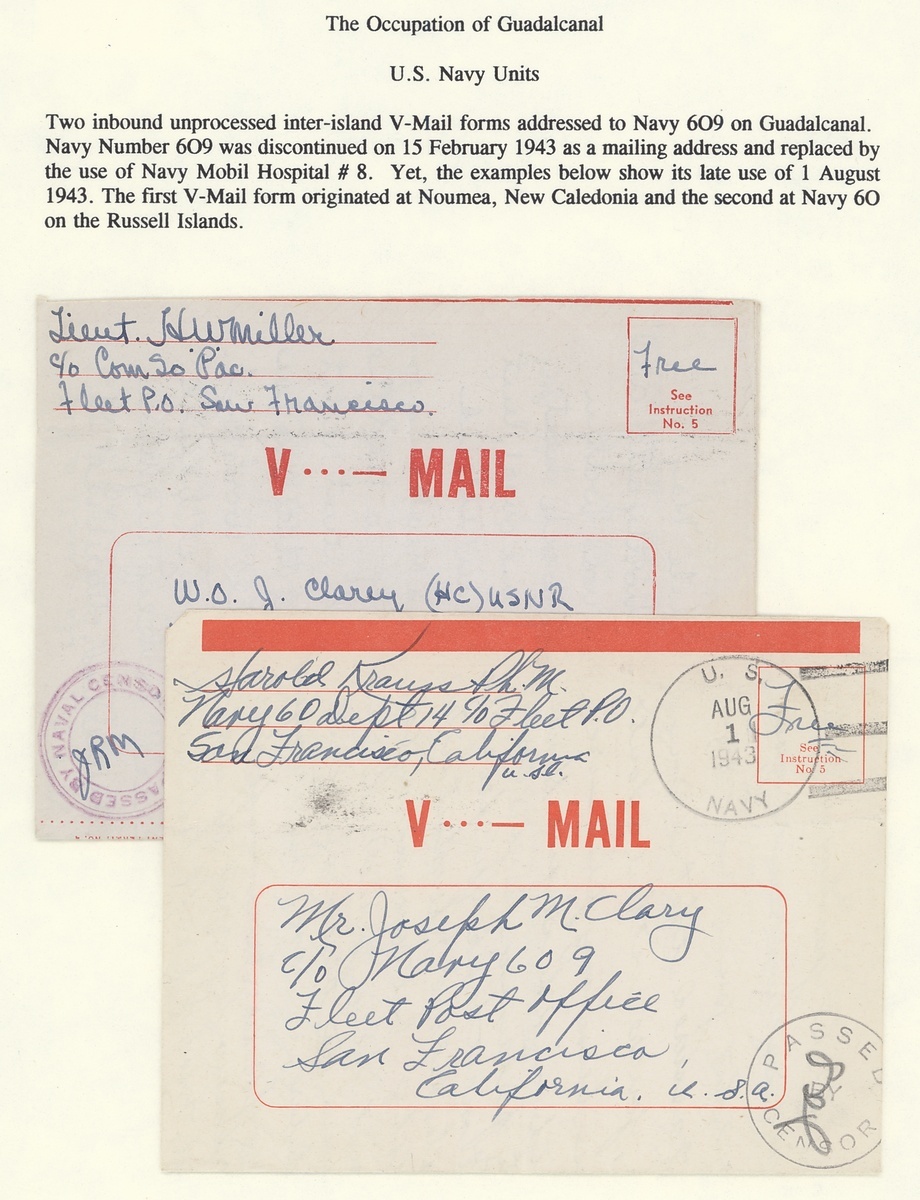 The Occupation of Guadalcanal
U.S. Navy Units
Two inbound unprocessed inter-island V-Mail forms addressed to Navy 6O9 on Guadalcanal.
Navy Number 6O9 was discontinued on 15 February 1943 as a mailing address and replaced by
the use of Navy Mobil Hospital # 8. Yet, the examples below show its late use of 1 August
1943. The first V-Mail form originated at Noumea, New Caledonia and the second at Navy 6O
on the Russell Islands.
Lieut. HWMiller
c/o ComSoPac.
Fleet P.O. San Francisco.
Free
See
Instruction
No. 5
V ···— MAIL
W.O. J. Clarey (HC) USNR
PASSED BY NAVAL CENSO
JRM
Harold Kraus Ph.M.
Navy 60 Dept 14 c/o Fleet P.O.
San Francisco, California
U.S.
U. S.
AUG
1
1943
NAVY
Free
See
Instruction
No. 5
V ···— MAIL
Mr. Joseph M. Clary
c/o Navy 609
Fleet Post Office
San Francisco,
California. U.S.A.
PASSED
BY
CENSOR